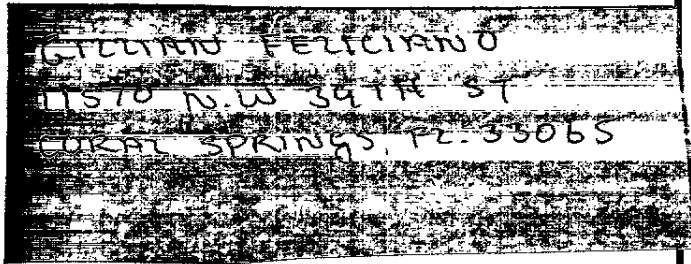 GILLIAN FELICIANO
11570 N.W 39TH ST
CORAL SPRINGS, FL. 33065